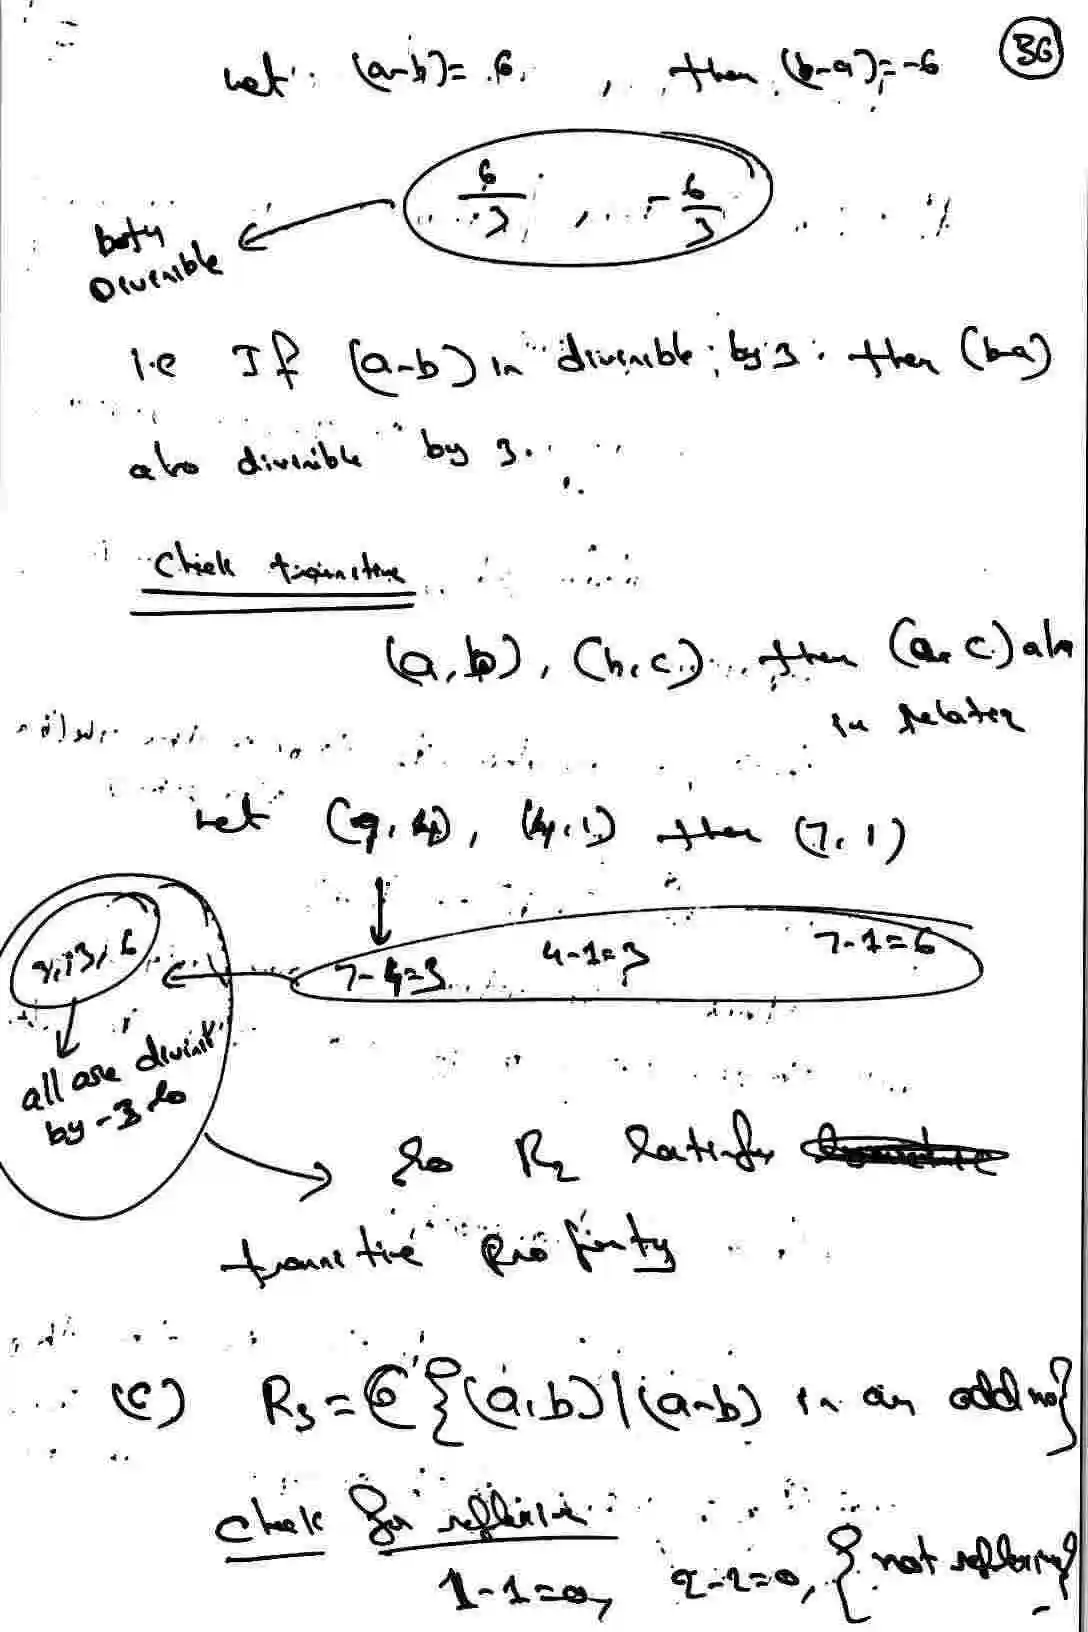 36
Let (a-b)= 6, then (b-a)=-6
6/3 , -6/3
both
Divisible
i.e If (a-b) is divisible by 3 then (b-a)
also divisible by 3.
Check transitive
(a,b), (b,c) then (a,c) also
in relation
Let (7,4), (4,1) then (7,1)
7-4=3 4-1=3 7-1=6
3,3,6
all are divisible
by -3 so
So R2 satisfy
transitive property
(c) R3={(a,b)|(a-b) is an odd no}
Check for reflexive
1-1=0, 2-2=0, {not reflexive}